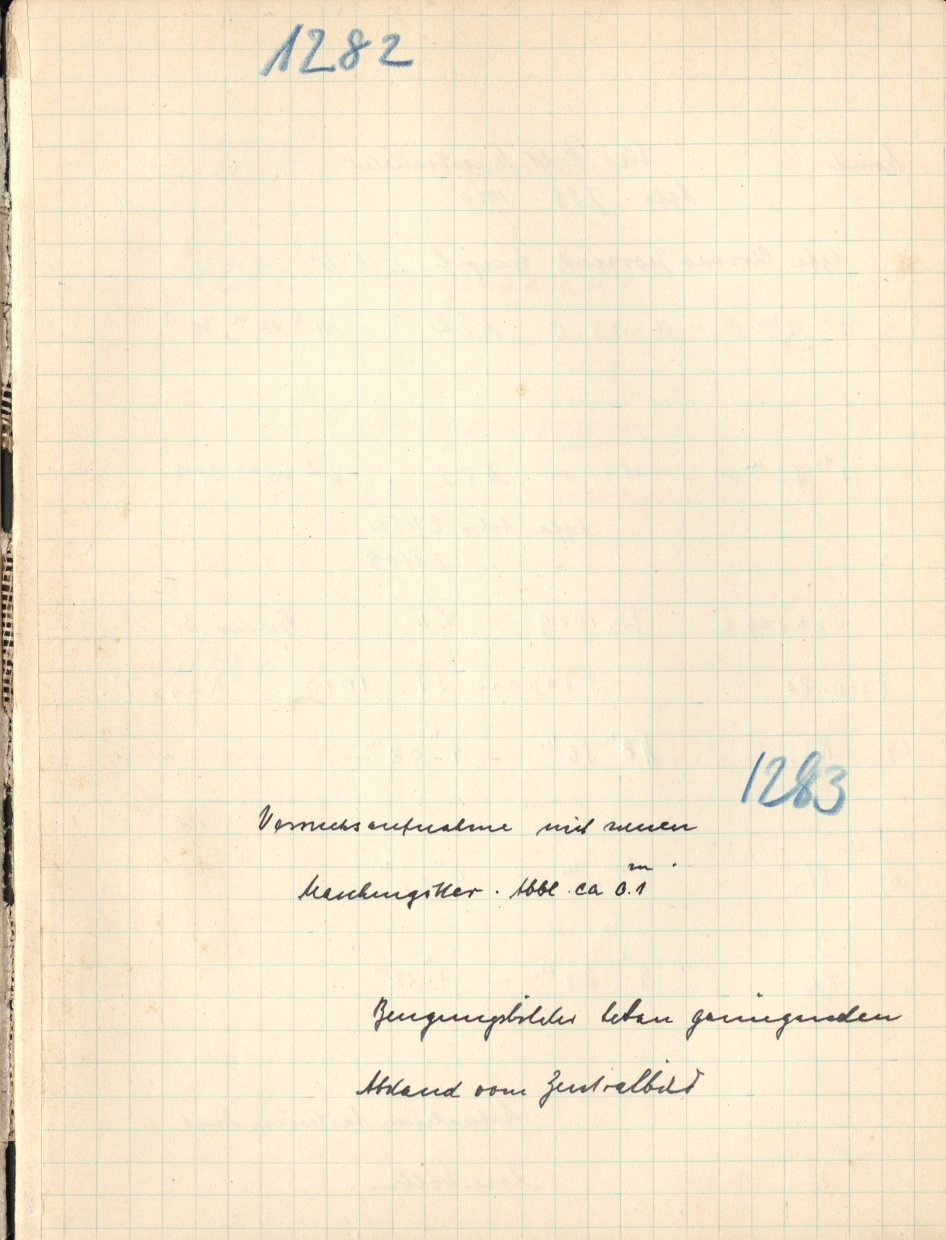 1282
1283
Versuchsaufnahme mit neuen
Maschengitter. Abbl. ca 0.1 m
Beugungsbilder haben genügenden
Abstand vom Zentralbild